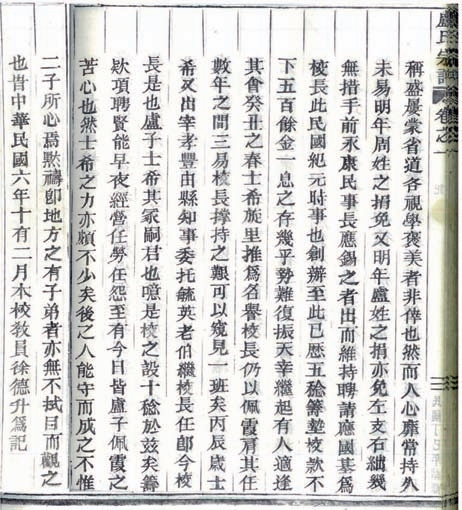 盧氏宗譜
卷之一
稱盛屢業省道各視學褒美者非倖也然而人心靡常持久
未易明年周姓之捐免又明年盧姓之捐亦免左支右絀幾
無措手前永康民事長應錫之者出而維持聘請應國基爲
校長此民國紀元時事也創辦至此已歷五稔籌墊校款不
下五百餘金一息之存幾乎勢難復振天幸繼起有人適逢
其會癸丑之春士希旋里推爲名譽校長仍以佩霞肩其任
數年之間三易校長撐持之艱可以窺見一班矣丙辰歲士
希又出宰孝豐由縣知事委托毓英老伯繼校長任卽今校
長是也盧子士希其冢嗣君也噫是校之設十稔於玆矣籌
欵項聘賢能早夜經營任勞任怨至有今日皆盧子佩霞之
苦心也然士希之力亦頗不少矣後之人能守而成之不惟
二子所心焉默禱卽地方之有子弟者亦無不拭目而觀之
也峕中華民國六年十有二月本校敎員徐德升爲記